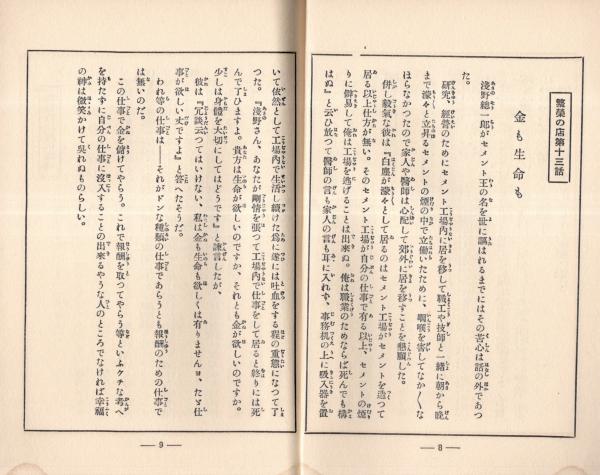 繁榮の店第十三話
金も生命も
淺野總一郎がセメント王の名を世に謳はれるまでにはその苦心は話の外であつ
た。
研究、經營のためにセメント工場內に居を移して職工や技師と一緖に朝から晚
まで濛々と立昇るセメントの煙の中で立働いたために、咽喉を害してなか〱な
ほらなかつたので家人や醫師は心配して郊外に居を移すことを懇願した。
併し毅氣な彼は『白塵が濛々として居るのはセメント工場がセメントを造つて
居る以上仕方が無い。そのセメント工場が自分の仕事で有る以上、セメントの煙
りに僻易して俺は工場を逃げることは出來ぬ。俺は職業のためならば死んでも構
はぬ』と云ひ放つて醫師の言も家人の言も耳に入れず、事務机の上に吸入器を置
— 8 —
いて依然として工場內で生活し續けた爲に遂には吐血をする程の重態になつて了
つた。『淺野さん、あなたが剛情を張つて工場內で仕事をして居ると終りには死
んで了ひますよ。貴方は生命が欲しいのですか、それとも金が欲しいのですか。
少しは身體を大切にしてはどうです』と諫言したが、
彼は『冗談云つてはいけない、私は金も生命も欲しくは有りませんヨ、たゞ仕
事が欲しい丈ですよ』と答へたそうだ。
われ等の仕事は——それがドンな種類の仕事であらうとも報酬のための仕事で
は無いのだ。
この仕事で金を儲けてやらう。これで報酬を取つてやらう等といふケチな考へ
を持たずに自分の仕事に沒入することの出來るやうな人のところでなければ幸福
の神は微笑かけて吳れぬものらしい。
— 9 —